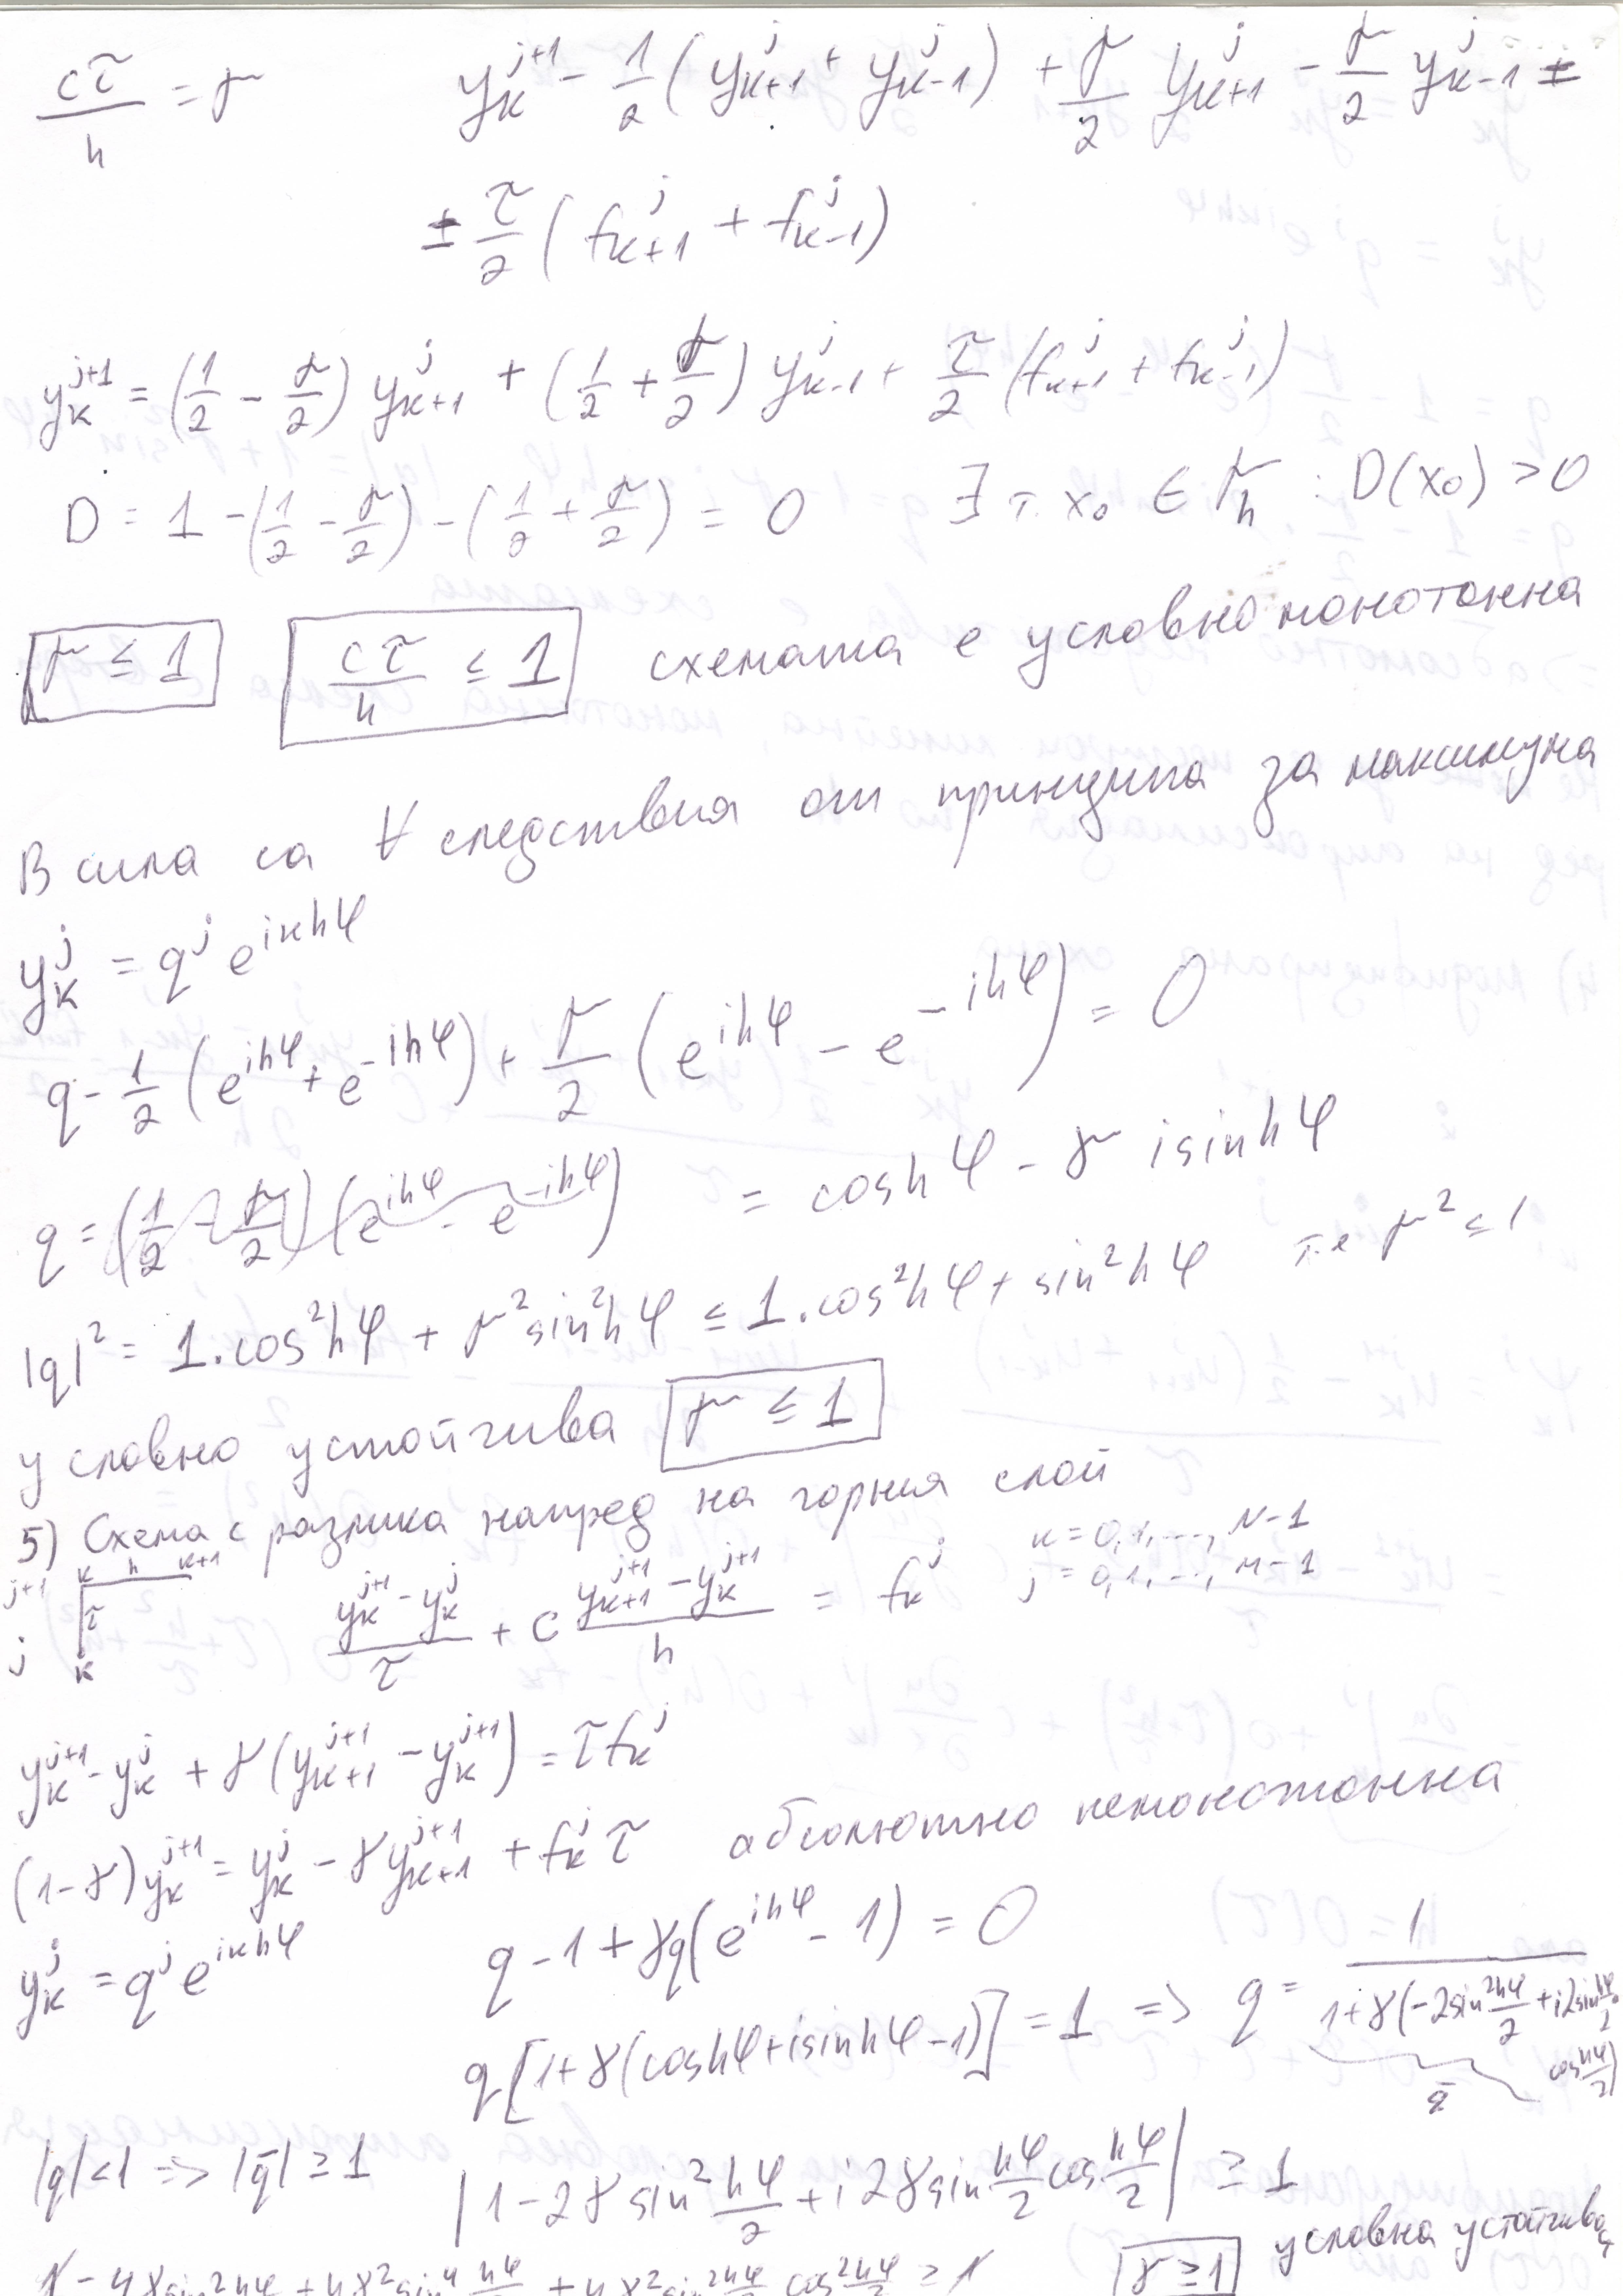 cτ/h = γ    y_k^{j+1} - 1/2 (y_{k+1}^j + y_{k-1}^j) + γ/2 y_{k+1}^j - γ/2 y_{k-1}^j =
= τ/2 (f_{k+1}^j + f_{k-1}^j)
y_k^{j+1} = (1/2 - γ/2) y_{k+1}^j + (1/2 + γ/2) y_{k-1}^j + τ/2 (f_{k+1}^j + f_{k-1}^j)
D = 1 - (1/2 - γ/2) - (1/2 + γ/2) = 0    ∃ т. x_0 ∈ γ_h : D(x_0) > 0
γ ≤ 1    cτ/h ≤ 1    схемата е условно монотонна
В сила са ∀ следствия от принципа за максимума
y_k^j = q^j e^{ikhφ}
q - 1/2 (e^{ihφ} + e^{-ihφ}) + γ/2 (e^{ihφ} - e^{-ihφ}) = 0
q = (1/2 - γ/2)(e^{ihφ} - e^{-ihφ}) = cos hφ - γ i sin hφ
|q|^2 = 1.cos^2 hφ + γ^2 sin^2 hφ ≤ 1.cos^2 hφ + sin^2 hφ    т.е γ^2 ≤ 1
условно устойчива γ ≤ 1
5) Схема с разлика напред на горния слой
j+1 k h k+1 τ j k    (y_k^{j+1} - y_k^j)/τ + c (y_{k+1}^{j+1} - y_k^{j+1})/h = f_k^j    k = 0,1,...,N-1
j = 0,1,...,M-1
y_k^{j+1} - y_k^j + γ(y_{k+1}^{j+1} - y_k^{j+1}) = τ f_k^j
(1-γ) y_k^{j+1} = y_k^j - γ y_{k+1}^{j+1} + f_k^j τ    абсолютно немонотонна
y_k^j = q^j e^{ikhφ}    q - 1 + γq(e^{ihφ} - 1) = 0
q[1 + γ(cos hφ + i sin hφ - 1)] = 1 => q = 1/(1 + γ(-2sin^2 hφ/2 + i2sin hφ/2 cos hφ/2))
q̄
|q| < 1 => |q̄| ≥ 1    |1 - 2γ sin^2 hφ/2 + i2γ sin hφ/2 cos hφ/2| ≥ 1
1 - 4γ sin^2 hφ/2 + 4γ^2 sin^4 hφ/2 + 4γ^2 sin^2 hφ/2 cos^2 hφ/2 ≥ 1    γ ≥ 1    условна устойчивост